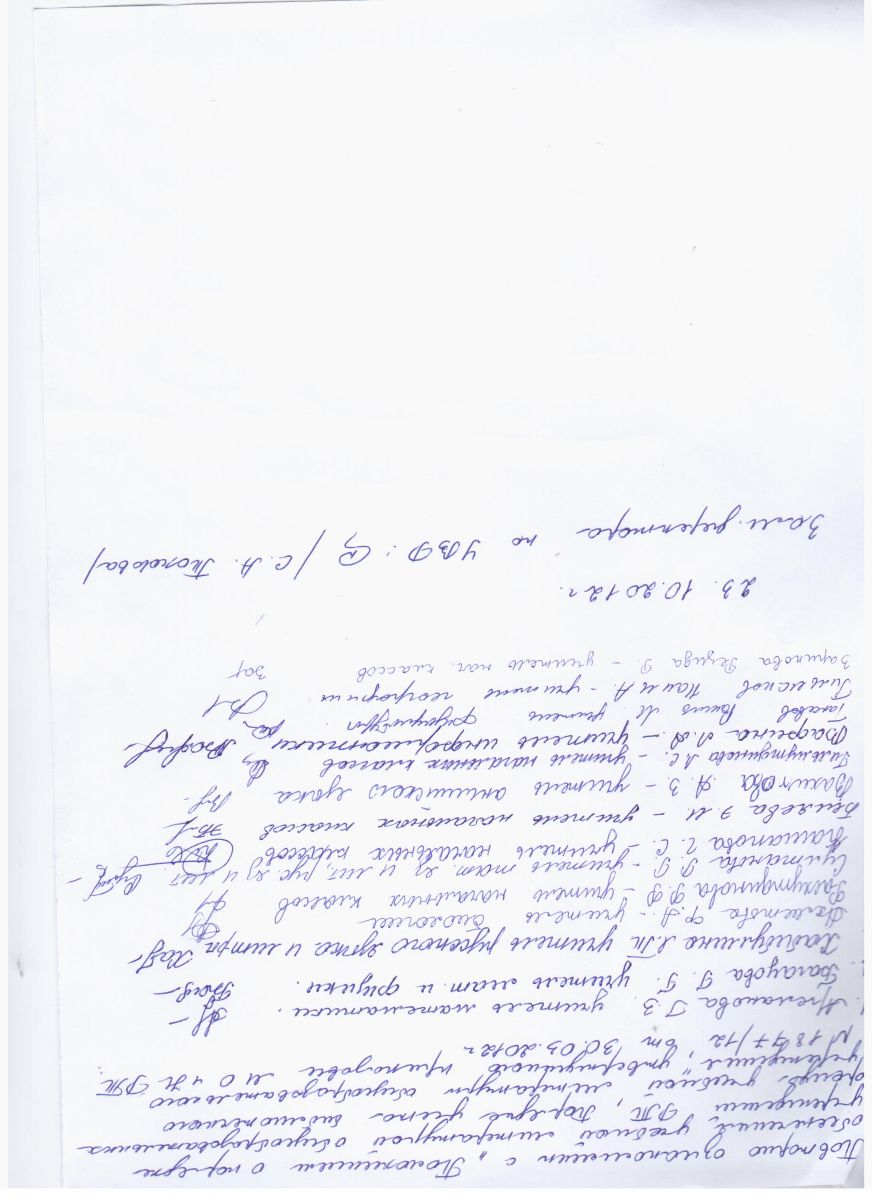 Повторно ознакомлен с „Положением о порядке
обеспечения учебной литературой общеобразовательных
учреждений РТ, порядке учета библиотечного
фонда учебной литературы общеобразовательного
учреждения", утвержденного приказом МО и Н РТ
№ 1877/12 от 30.03.2012г
учитель математики.
Багаутова Г. Г. учитель мат и физики.
Хабибуллина Л.Т. учитель русского языка и литры
Ф. А. - учитель биологии
Фасхутдинова Р.Ф - учитель начальных классов
Султанова Р.Р. - учитель тат. яз и лит, рус яз и лит.
Г. С. учитель начальных классов
Беляева Э. И. - учитель начальных классов
Вахитова А. З. - учитель английского языка
Гильмутдинова Л.С. - учитель начальных классов
Вафина Л.Д - учитель информатики
М. учитель физкультуры
Наил А. - учитель географии
Зарипова Резида Р. - учитель нач. классов
23. 10.2012 г.
Зам. директора по УВР: / С. Н. /